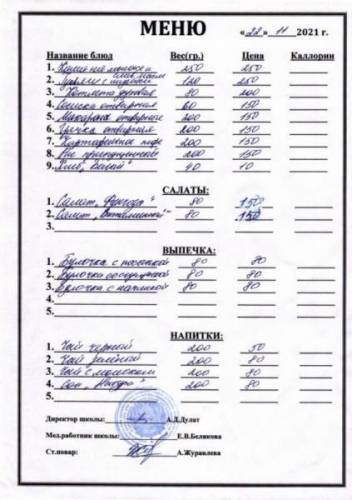 МЕНЮ «22» 11 2021 г.
Название блюд Вес(гр.) Цена Каллории
1. Каша на молоке и слив. масле 250 250
2. с 120 250
3. Котлета 80 200
4. Сосиска отварная 60 150
5. Макароны отварные 200 150
6. Гречка отварная 200 150
7. Картофельное пюре 200 150
8. Рис припущенный 200 150
9. Хлеб 40 10
САЛАТЫ:
1. Салат, 80 150
2. Салат „Витаминный" 80 150
3.
ВЫПЕЧКА:
1. Булочка с 80 80
2. Булочка со сгущенкой 80 80
3. Булочка с 80 80
4.
5.
НАПИТКИ:
1. Чай черный 200 50
2. Чай зелёный 200 80
3. Чай с молоком 200 80
4. Сок „ 200 80
5.
Директор школы: А.Д.Дулат
Мед.работник школы: Е.В.Беликова
Ст.повар: А.Журавлева